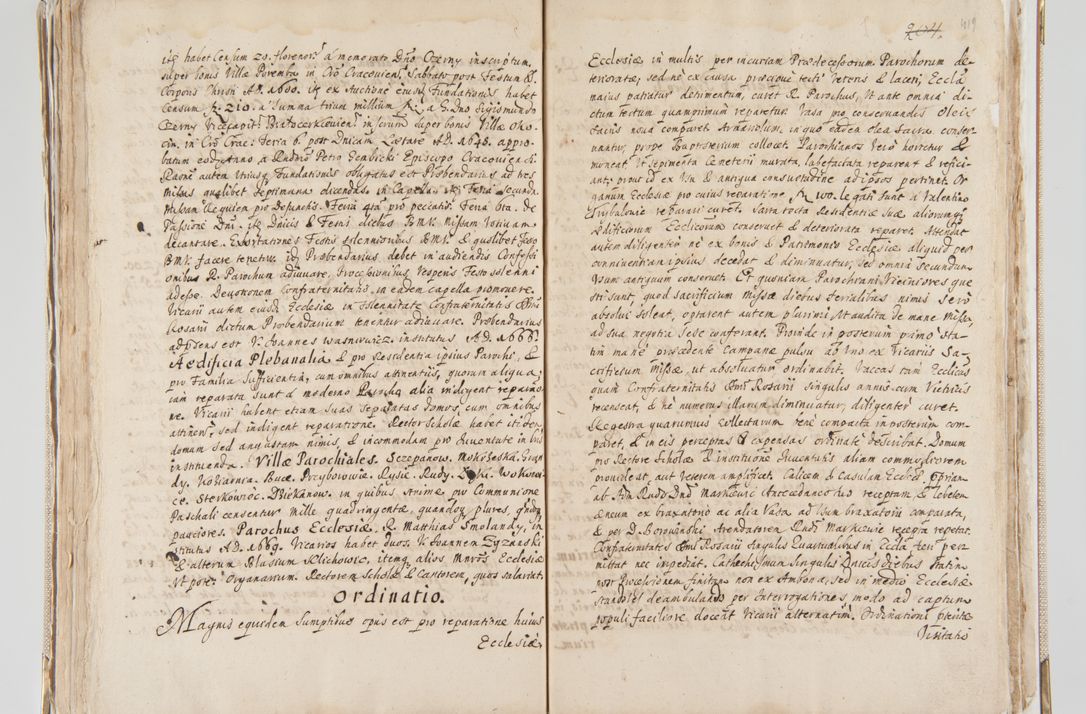 itq habet Censum 20. florenor. a memorato Dno Czerny inscriptum
super bonis Villæ Poremba in Crō Cracovien. Sabbato post Festum S.
Corporis Christi AD. 1600. itq ex Auctione eiusd Fundationis habet
Censum R. 210. a Summa trium millium R. a G. Dno Sigismundo
Czerny Vicecapit. inscrium super bonis Villæ Oko
cin, in Crō Crac. Feria 6. post Dnicam Lætare AD. 1648. appro-
batum eod. Anno a Rndmo Petro Gembicki Episcopo Cracovien di
Raōne autem utriusq Fundationis obligatus est Probendarius ad tres
missas qualibet Septimana dicendas in Capella itq Feria Secunda
Missam Requiem pro Defunctis. Feria 4ta pro peccatis. Feria 6ta. de
Passione Dni. itq Dnicis & Festis dictus B.M.V. Missam Votivam
decantare. Exhortationes Festis solennioribus B.M.V. & quolibet festo
B.M.V. facere tenetur. itq Probendarius debet in audiendis Confessi
onibus R. Parochum adiuuare, Processionibus Vesperis Festo solenni
adesse. Deuotionem Confraternitatis in eadem capella promouere.
Vicarii autem eiusd Ecclesiæ in Solennitate Confraternitatis Smi
Rosarii dictum Probendarium tenentur adiuuare. Probendarius
ad præsens est V. Joannes Wasniewicz institutus AD. 1666.
Aedificia Plebanalia, & pro Residentia ipsius Parochi, &
pro Familia Sufficientia, cum omnibus attinentiis, quorum aliqua
iam reparata sunt a moderno Parocho alia indigent reparatio
ne. Vicarii habent etiam suas separatas domos, cum omnibus
attinen. sed indigent reparatione. Rector Scholæ habet itidem
domum sed angustam nimis, & incommodam pro Iuuentute in bus
instituenda. Villæ Parochiales. Sczepanow. Mokrzeska. Gran
dy. Wokowi
ce. Sterkowiec. Dziekanow. in quibus Animæ pro Communione
Paschali censentur mille quadringentæ, quandoq plures, qndoq
pauciores. Parochus Ecclesiæ. R. Matthias Smolandy, in
stitutus AD. 1669. Vicarios habet duos. V. Joannem Zyzanski
& alterum Blasium Klichowic, itemq alios Mnros Ecclesiæ
Vt pote: Organarium. Rectorem Scholæ & Cantorem, quos salariat.
Ordinatio.
Magnis equidem Sumptibus opus est pro reparatione huius
Ecclesiæ
419
Ecclesiæ in multis per incuriam Prædecessorum Parochorum de-
terioratæ, sed ne ex causa præcipue tecti veteris & laceri, Eccla
maius patiatur detrimentum, curet R. Parochus, Vt ante omnia di-
ctum tectum quamprimum reparetur. Vasa pro conseruandis Oleis
Sacris noua comparet. Armariolum, in quo eadem olea sacra conser
uantur, prope Baptisterium collocet. Parochianos vero hortetur &
moneat Vt sepimenta Cemeterii murata, labefactata reparent & refici-
ant, prout id ex Usu & antiqua consuetudine ad ipsos pertinet. Or
ganum Ecclesiæ pro cuius reparatione R. 100. legati sunt a Valentino
Grybalonio reparari curet. Sarta tecta Residentiæ Suæ aliorumq
Ædificiorum Ecclicorum conseruet & deteriorata reparet. Attendat
autem diligenter ne ex bonis & Patrimonio Ecclesiæ aliquid per
conniuentiam ipsius decedat & diminuatur, sed omnia secundum
Usum antiquum conseruet. Et quoniam Parochiani Viciniores que
sti sunt, quod sacrificium Missæ diebus Ferialibus nimis sero
absolui soleat, optarent autem plurimi Vt audita de mane Missa,
ad sua negotia sese conferant. Proinde in posterum primo sta-
tim mane præcedente Campanæ pulsu ab Uno ex Vicariis Sa-
crificium Missæ, ut absoluatur ordinabit. Vaccas tam Ecclicas
quam Confraternitatis Smi Rosarii singulis annis cum Vitricis
recenseat, & ne numerus illarum diminuatur, diligenter curet.
Regestra quarumuis collectarum bene compacta in posterum com-
paret, & in eis perceptas & expensas ordinate describat. Domum
pro Rectore Scholæ & institutione Iuuentutis aliam commodiorem
prouideat, aut veterem amplificet. Calicem & Casulam Ecclesiæ
ab Adm Rndo Dno Markiewic Antecedaneo suo receptam, & lebetem
æneum ex braxatorio ac alia Vasa ad Usum braxatorii comparata,
& per D. Borowinski Arendatorem Rndi Markiewic recepta repetat.
Confraternitatis Smi Rosarii singulis Quartualibus in Eccla fieri per
mittat nec impediat. Cathechismum singulis Dnicis diebus statim
post Processionem finitam non ex Ambona, sed in medio Ecclesiæ
stando vel deambulando per Interrogationes modo ad captum
populi faciliore doceat Vicarii alternatim. Ordinationi
Visitatio